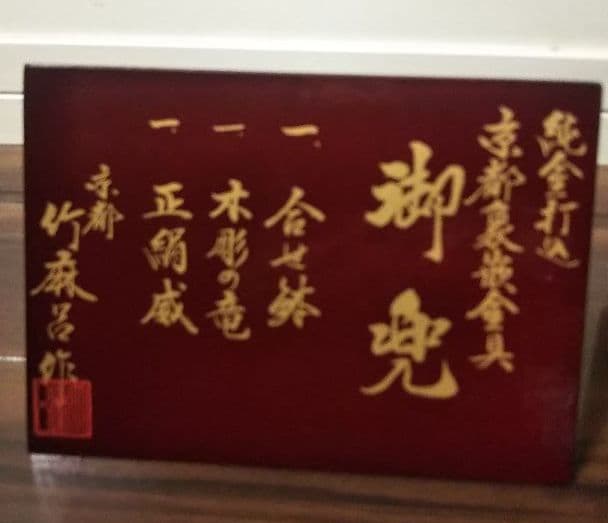 純金打込
京都象嵌金具
御兜
一、合せ鉢
一、木彫の竜
一、正絹威
京都
竹麻呂作